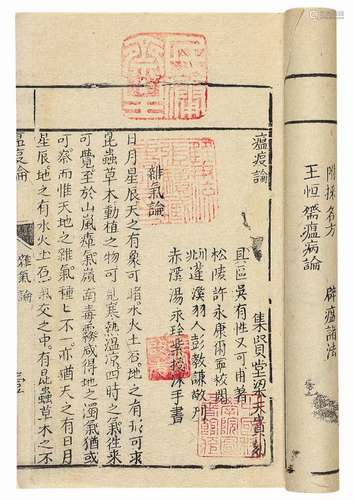 附採名方 辟瘟諸法
王恒儒瘟病論
瘟疫論
集賢堂
具區吳有性又可甫著
松陵許永康爾寧校閱
達溪羽人彭教謙敬刊
赤深湯永珍柴授沐手書
雜氣論
日月星辰天之有象可睹水火土谷地之有形可求
昆蟲草木動植之物可見寒熱溫凉四時之氣往來
可覺至於山嵐瘴氣嶺南毒霧咸得地之濁氣猶或
可察而惟天地之雜氣種上不一亦猶天之有日月
星辰地之有水火土石氣交之中有昆蟲草木不
瘟疫論 雜氣論